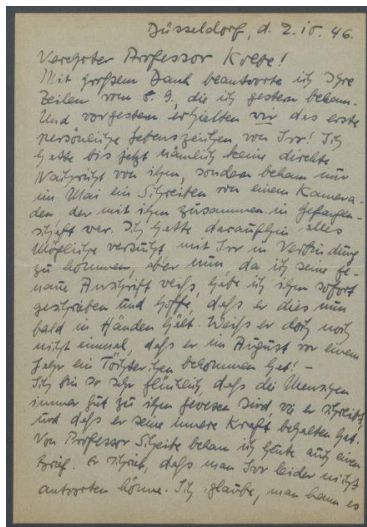 Düsseldorf, d. 2.10.46.
Verehrter Professor Kolbe!
Mit großem Dank beantworte ich Ihre
Zeilen vom 8.9., die ich gestern bekam.
Und vorgestern erhielten wir das erste
persönliche Lebenszeichen von Isr! Ich
hatte bis jetzt nämlich keine direkte
Nachricht von ihm, sondern bekam nur
im Mai ein Schreiben von einem Kamera-
den der mit ihm zusammen in Gefangen-
schaft war. Ich hatte daraufhin alles
Mögliche versucht mit in Verbindung
zu kommen, aber nun, da ich seine ge-
naue Anschrift weiß, habe ich ihm sofort
geschrieben und hoffe, daß er dies nun
bald in Händen hält. Weiß er doch noch
nicht einmal, daß er im August vor einem
Jahr ein Töchterchen bekommen hat! –
Ich bin so sehr glücklich daß die Menschen
immer gut zu ihm gewesen sind, wie er schreibt,
und daß er seine innere Kraft behalten hat.
Von Professor Scheibe bekam ich heute auch einen
Brief. Er schrieb, daß man leider nicht
antworten könne. Ich glaube, man kann es